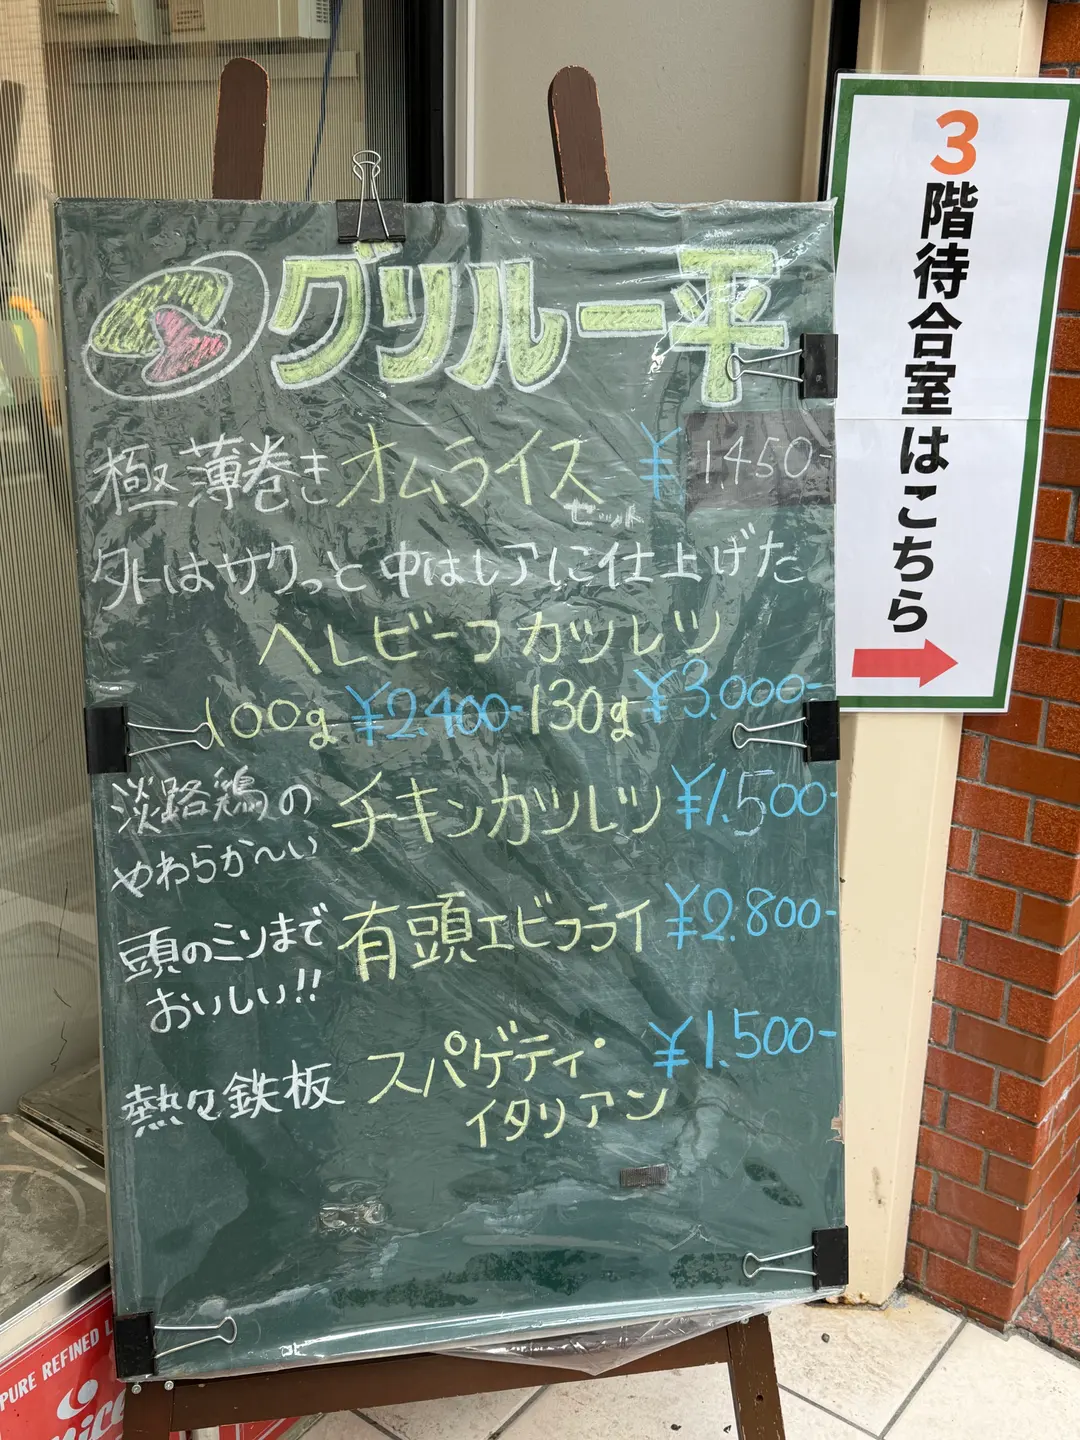 グリル一平
極薄巻きオムライス ¥1,450-
セット
外はサクっと中はレアに仕上げた
ヘレビーフカツレツ
100g ¥2.400- 130g ¥3.000-
淡路鶏の
やわらか〜い
チキンカツレツ ¥1.500-
頭のミソまで
おいしい!!
有頭エビフライ ¥2.800-
熱々鉄板
スパゲティ・
イタリアン
¥1.500-
3階待合室はこちら
PURE REFINED